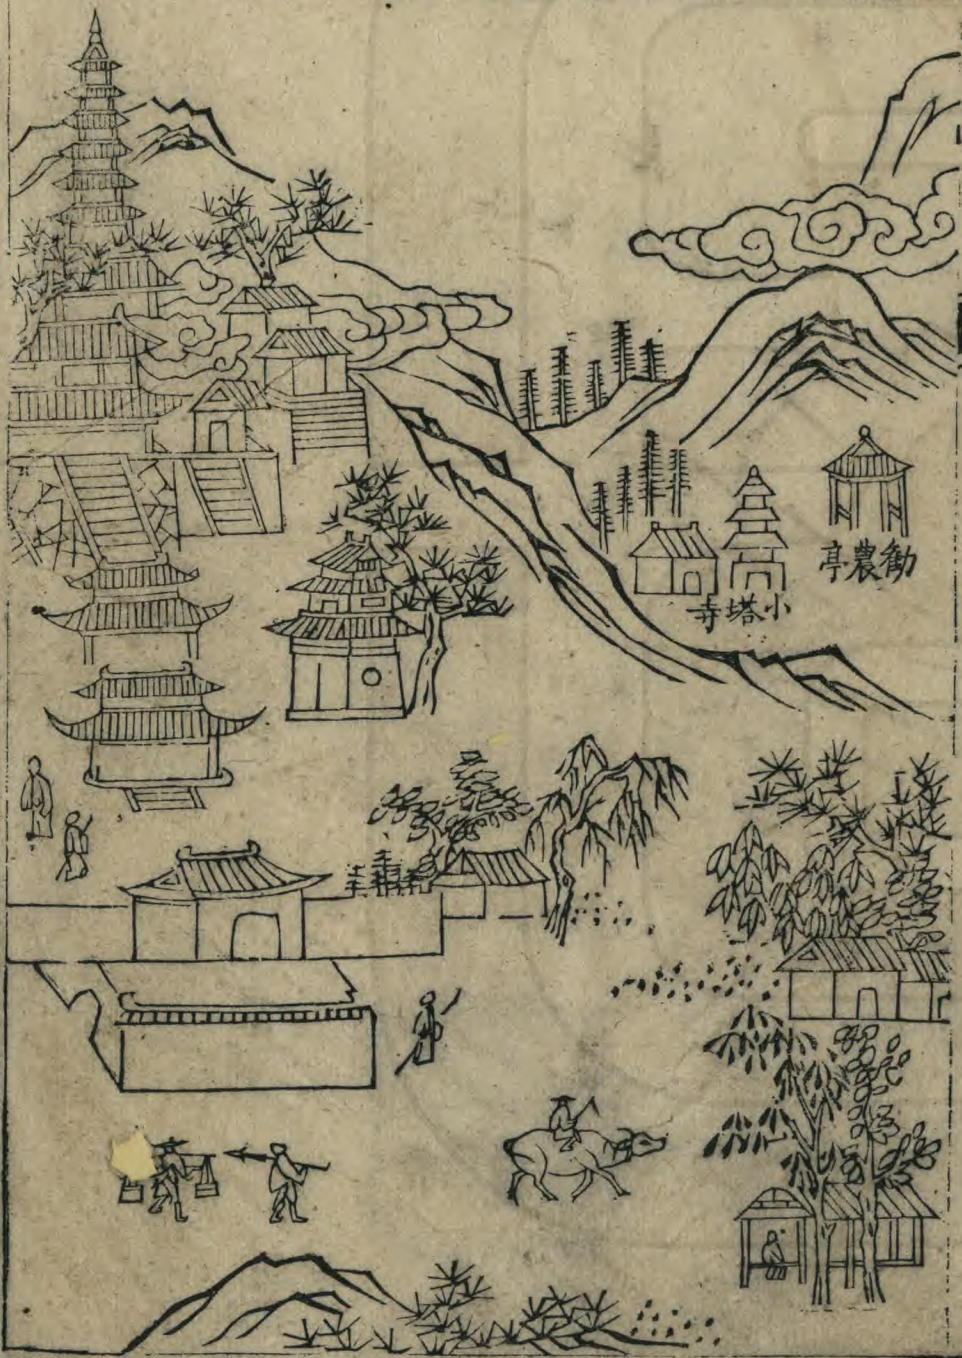 勸農亭
小塔寺